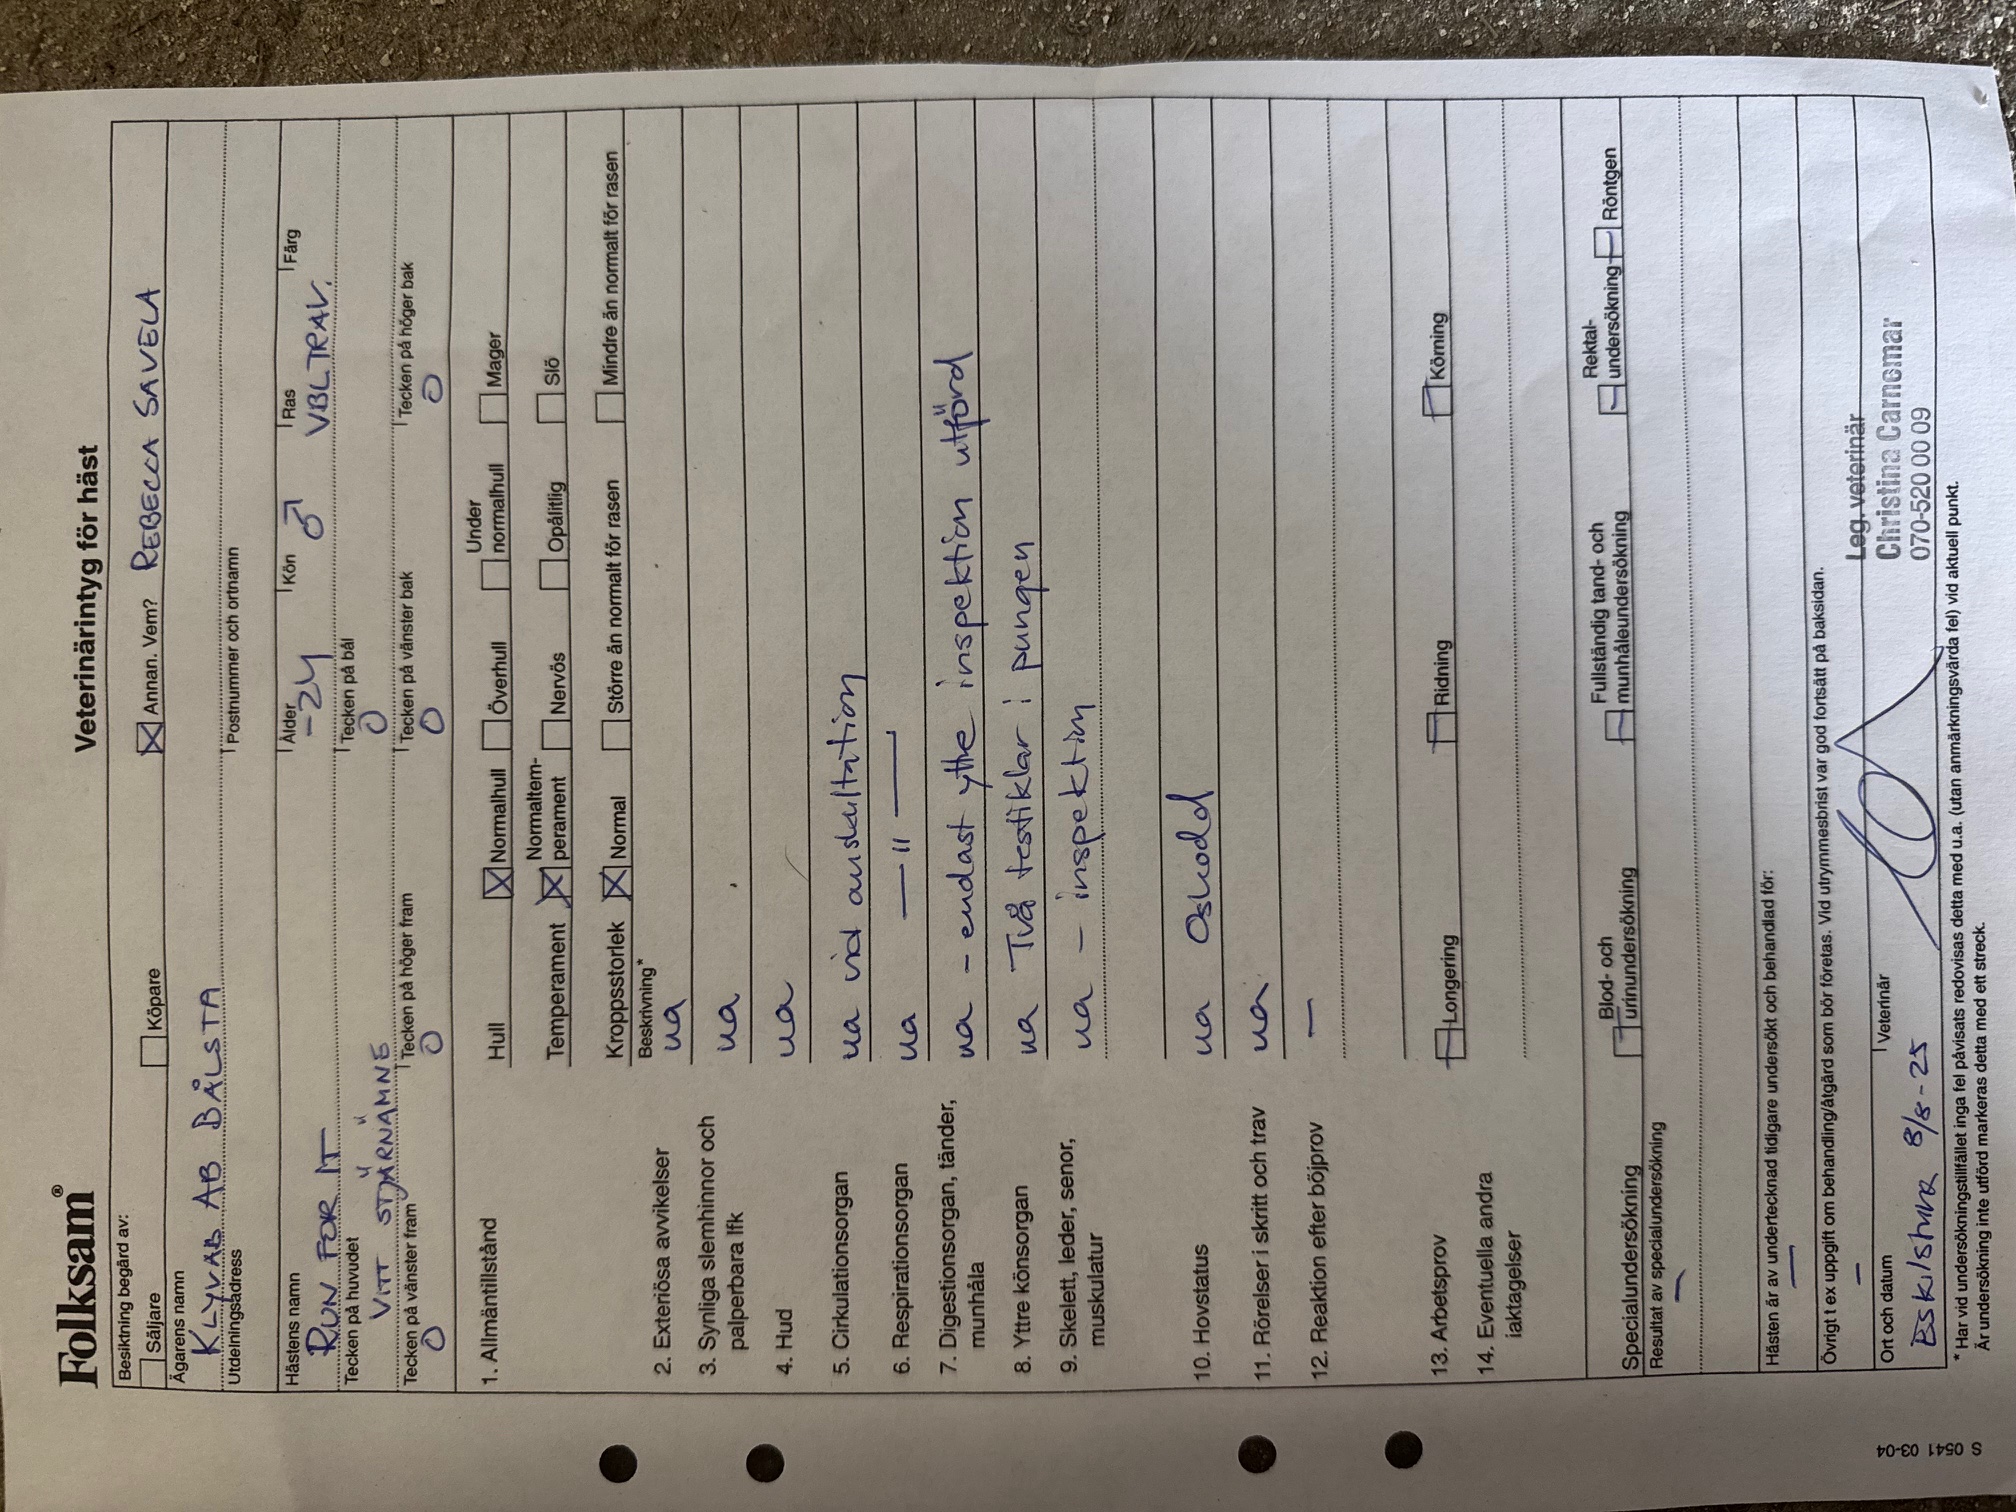 Folksam®
Veterinärintyg för häst
Besiktning begärd av:
Säljare Köpare Annan. Vem? REBECCA SAVELA
Ägarens namn
KLYVAB AB BÅLSTA
Utdelningsadress Postnummer och ortnamn
Hästens namn Ålder Kön Ras Färg
RUN FOR IT -24 ♂ VBLTRAV.
Tecken på huvudet Tecken på bål
VITT STJÄRNÄMNE 0
Tecken på vänster fram Tecken på höger fram Tecken på vänster bak Tecken på höger bak
0 0 0 0
1. Allmäntillstånd Hull Normalhull Överhull Under normalhull Mager
Temperament Normaltem-perament Nervös Opålitlig Slö
Kroppsstorlek Normal Större än normalt för rasen Mindre än normalt för rasen
Beskrivning*
2. Exteriösa avvikelser ua
3. Synliga slemhinnor och palperbara lfk ua
4. Hud ua
5. Cirkulationsorgan ua vid auskultation
6. Respirationsorgan ua — " —
7. Digestionsorgan, tänder, munhåla ua - endast yttre inspektion utförd
8. Yttre könsorgan ua Två testiklar i pungen
9. Skelett, leder, senor, muskulatur ua - inspektion
10. Hovstatus ua Oskodd
11. Rörelser i skritt och trav ua
12. Reaktion efter böjprov —
13. Arbetsprov Longering Ridning Körning
14. Eventuella andra iakttagelser
Specialundersökning Blod- och urinundersökning Fullständig tand- och munhåleundersökning Rektal-undersökning Röntgen
Resultat av specialundersökning
—
Hästen är av undertecknad tidigare undersökt och behandlad för:
—
Övrigt t ex uppgift om behandling/åtgärd som bör företas. Vid utrymmesbrist var god fortsätt på baksidan.
—
Ort och datum Veterinär
Eskilstuna 8/8-25
Leg. veterinär
Christina Carnemar
070-520 00 09
* Har vid undersökningstillfället inga fel påvisats redovisas detta med u.a. (utan anmärkningsvärda fel) vid aktuell punkt.
Är undersökning inte utförd markeras detta med ett streck.
S 0541 03-04